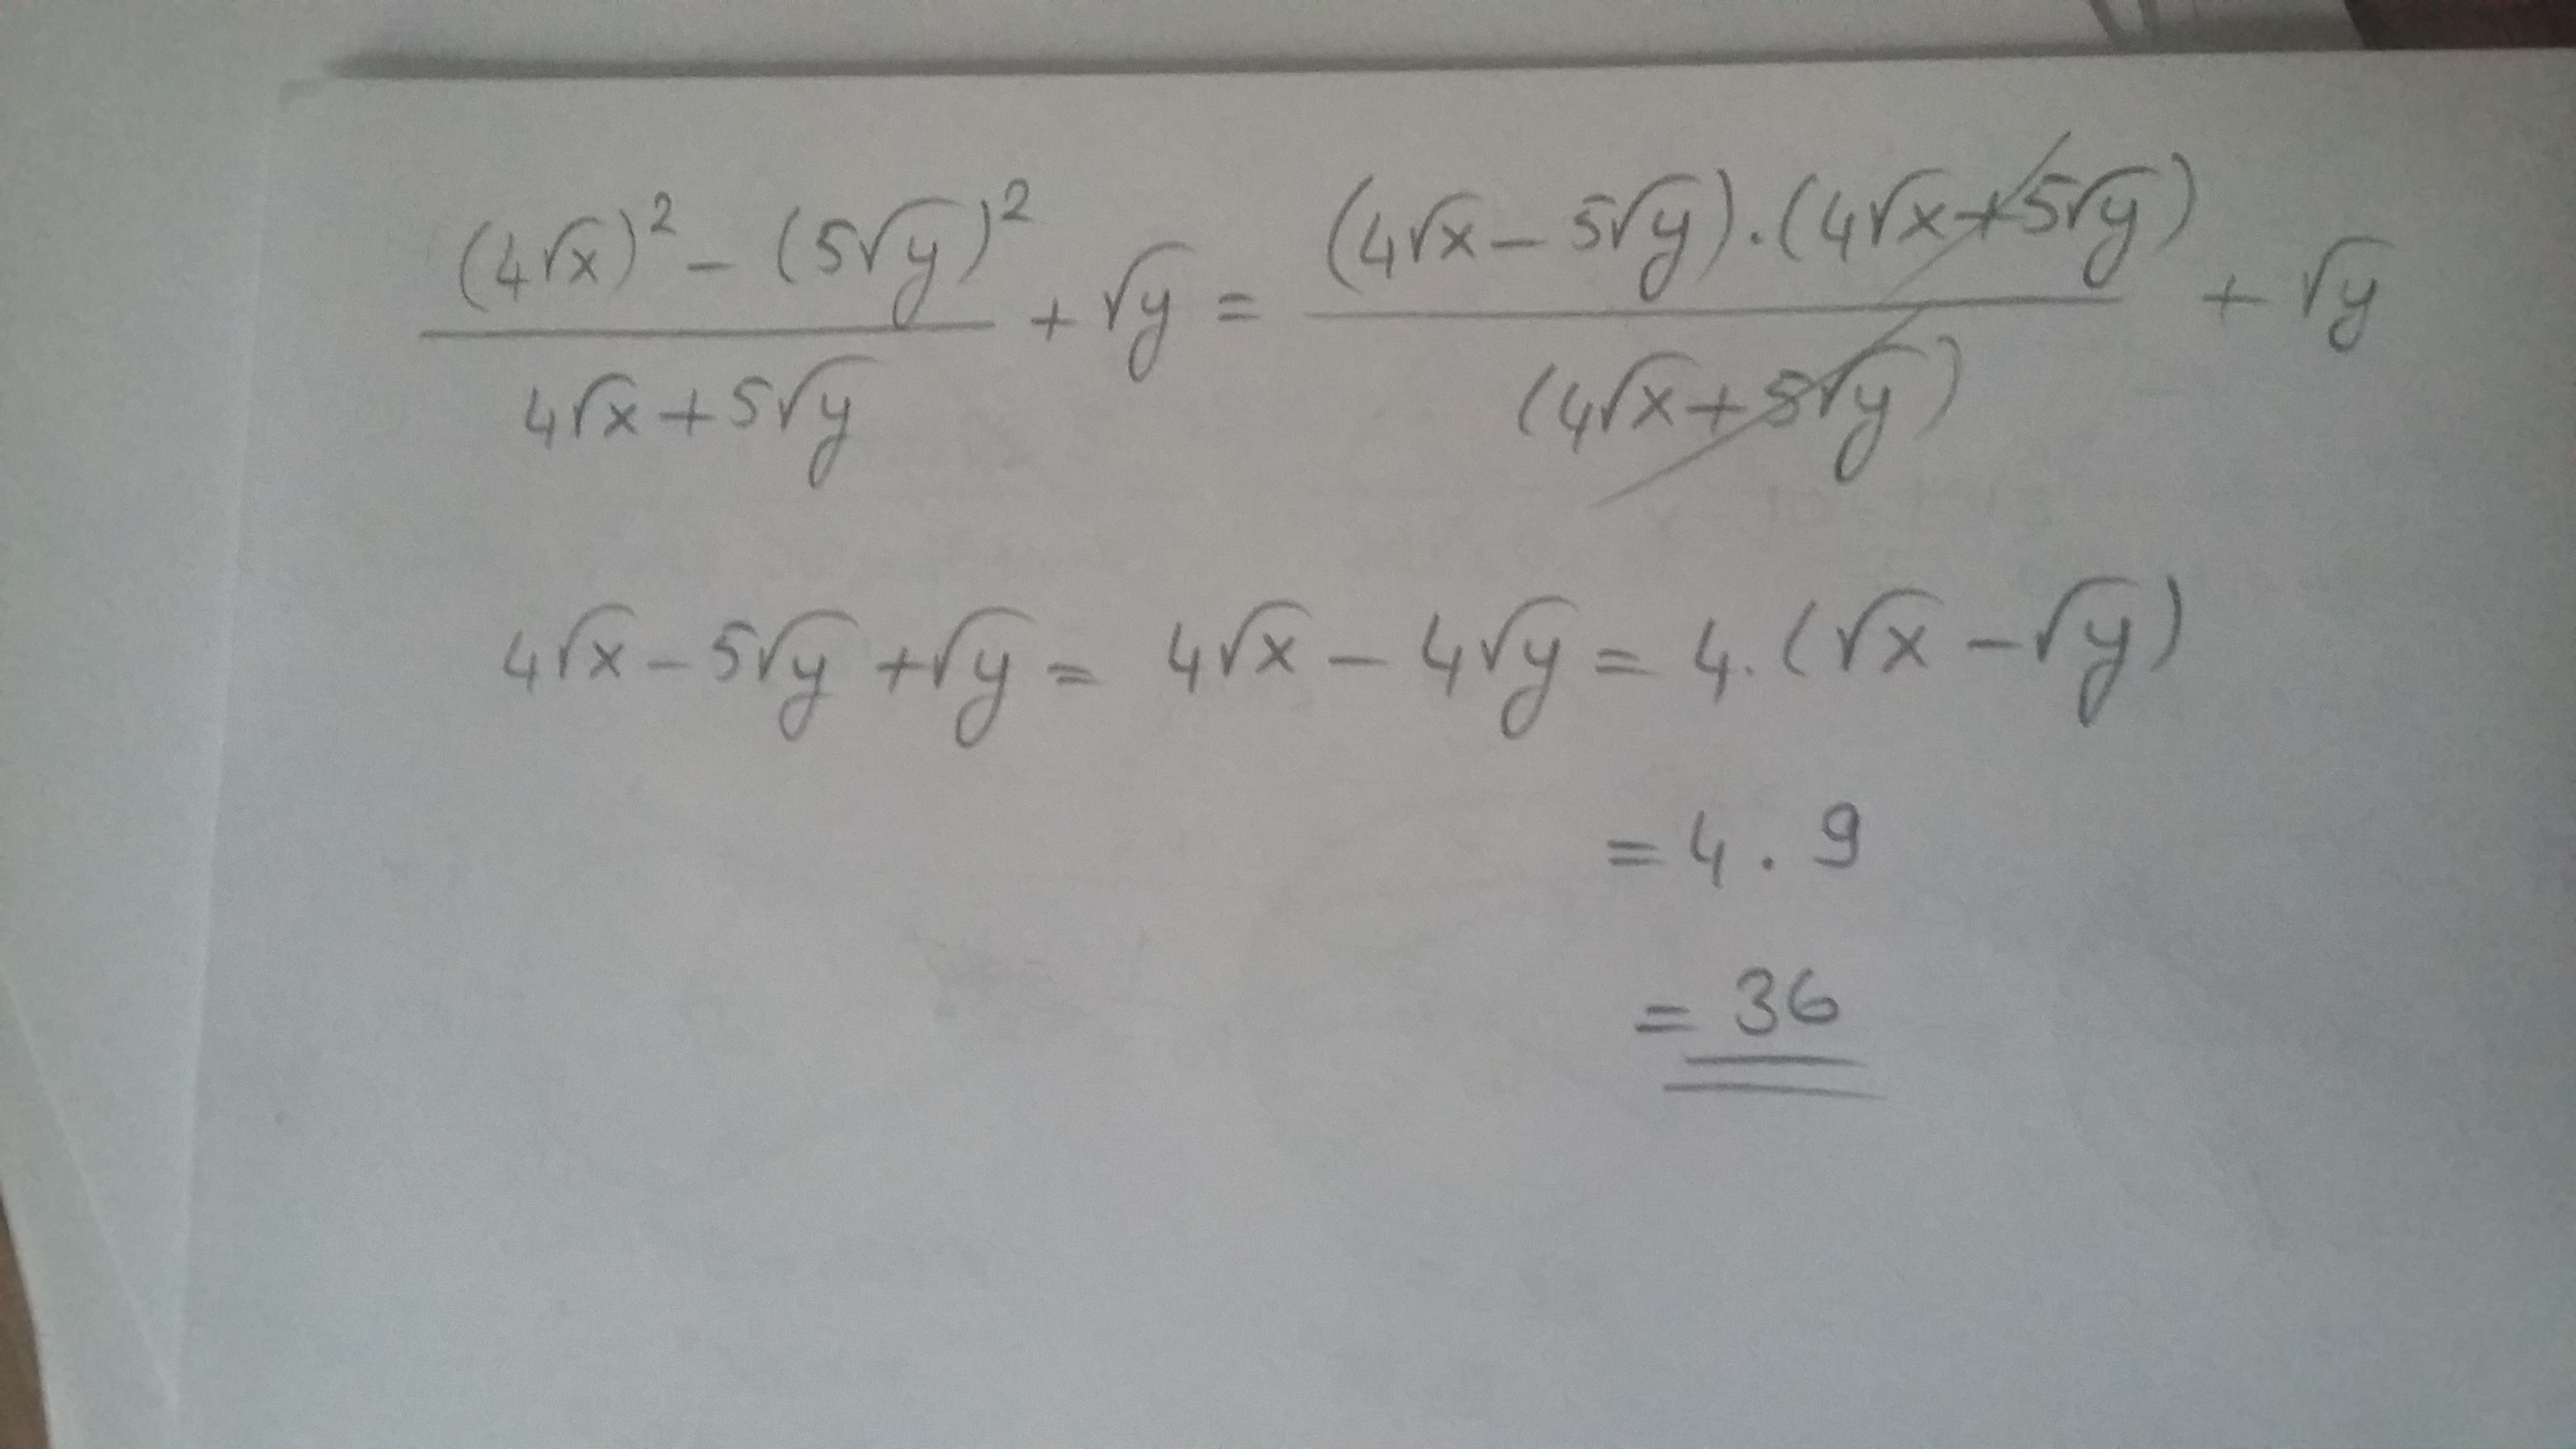 ((4√x)² - (5√y)²)/(4√x+5√y) + √y = ((4√x - 5√y).(4√x+5√y))/((4√x+5√y)) + √y
4√x - 5√y + √y = 4√x - 4√y = 4.(√x - √y)
= 4 . 9
= 36